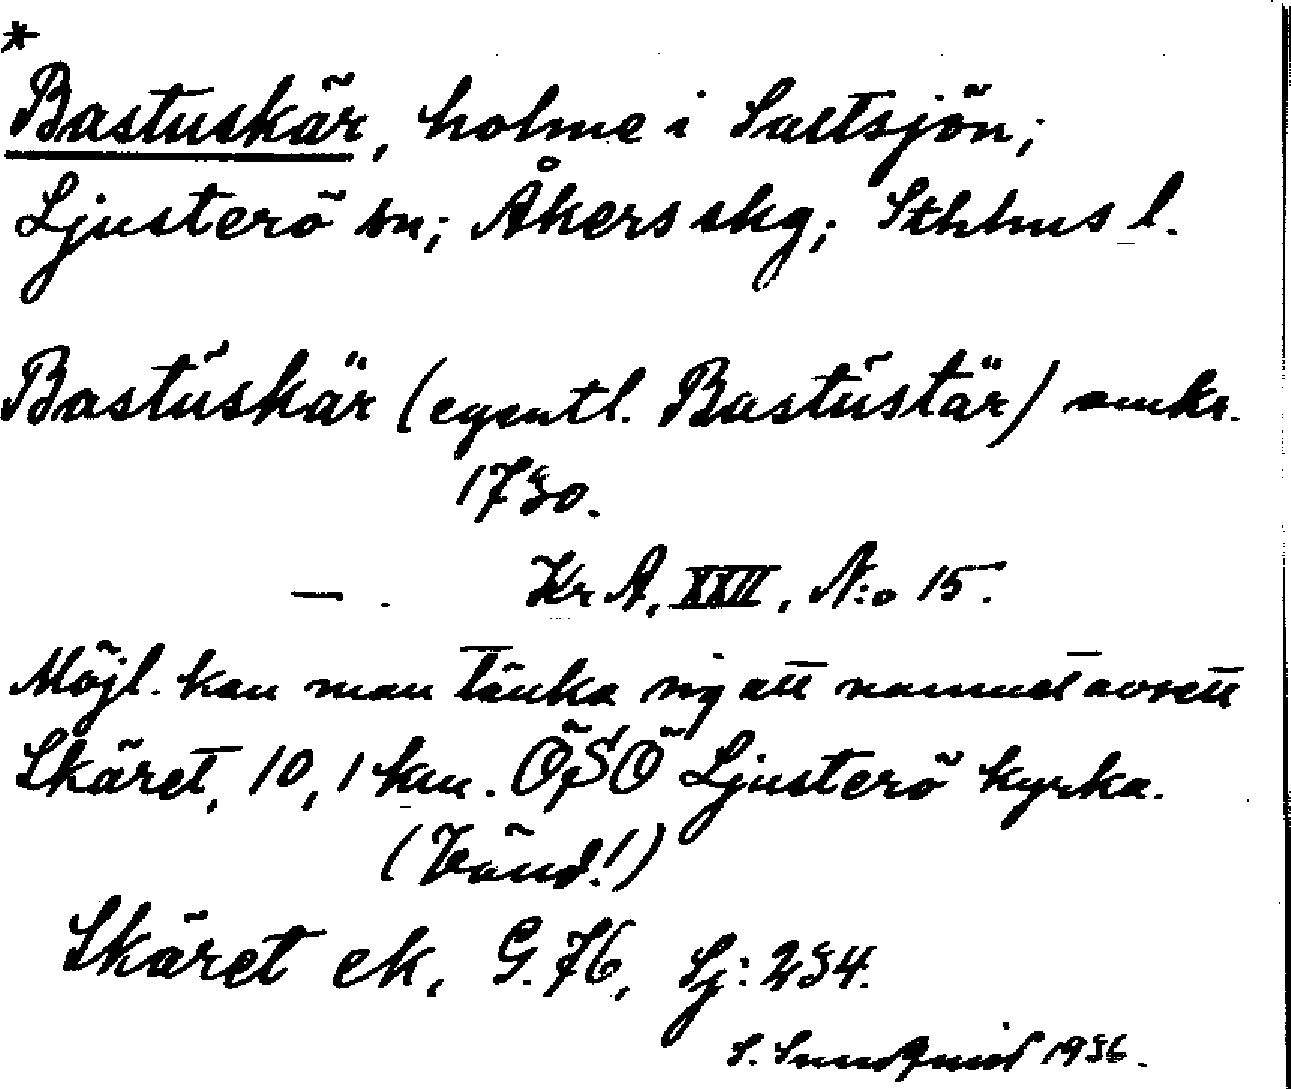 *
Bastuskär, holme i Saltsjön;
Ljusterö sn; Åkers skg; Sthlms l.
Bastuskär (egentl. Bastustär) omkr.
1730.
— . Kr A, XXII, N:o 15.
Möjl. kan man tänka sig att namnet avsett
Skäret, 10,1 km. ÖSÖ Ljusterö kyrka.
(Vänd!)
Skäret ek, G. 76, Lj: 234.
S. Sundquist 1936.